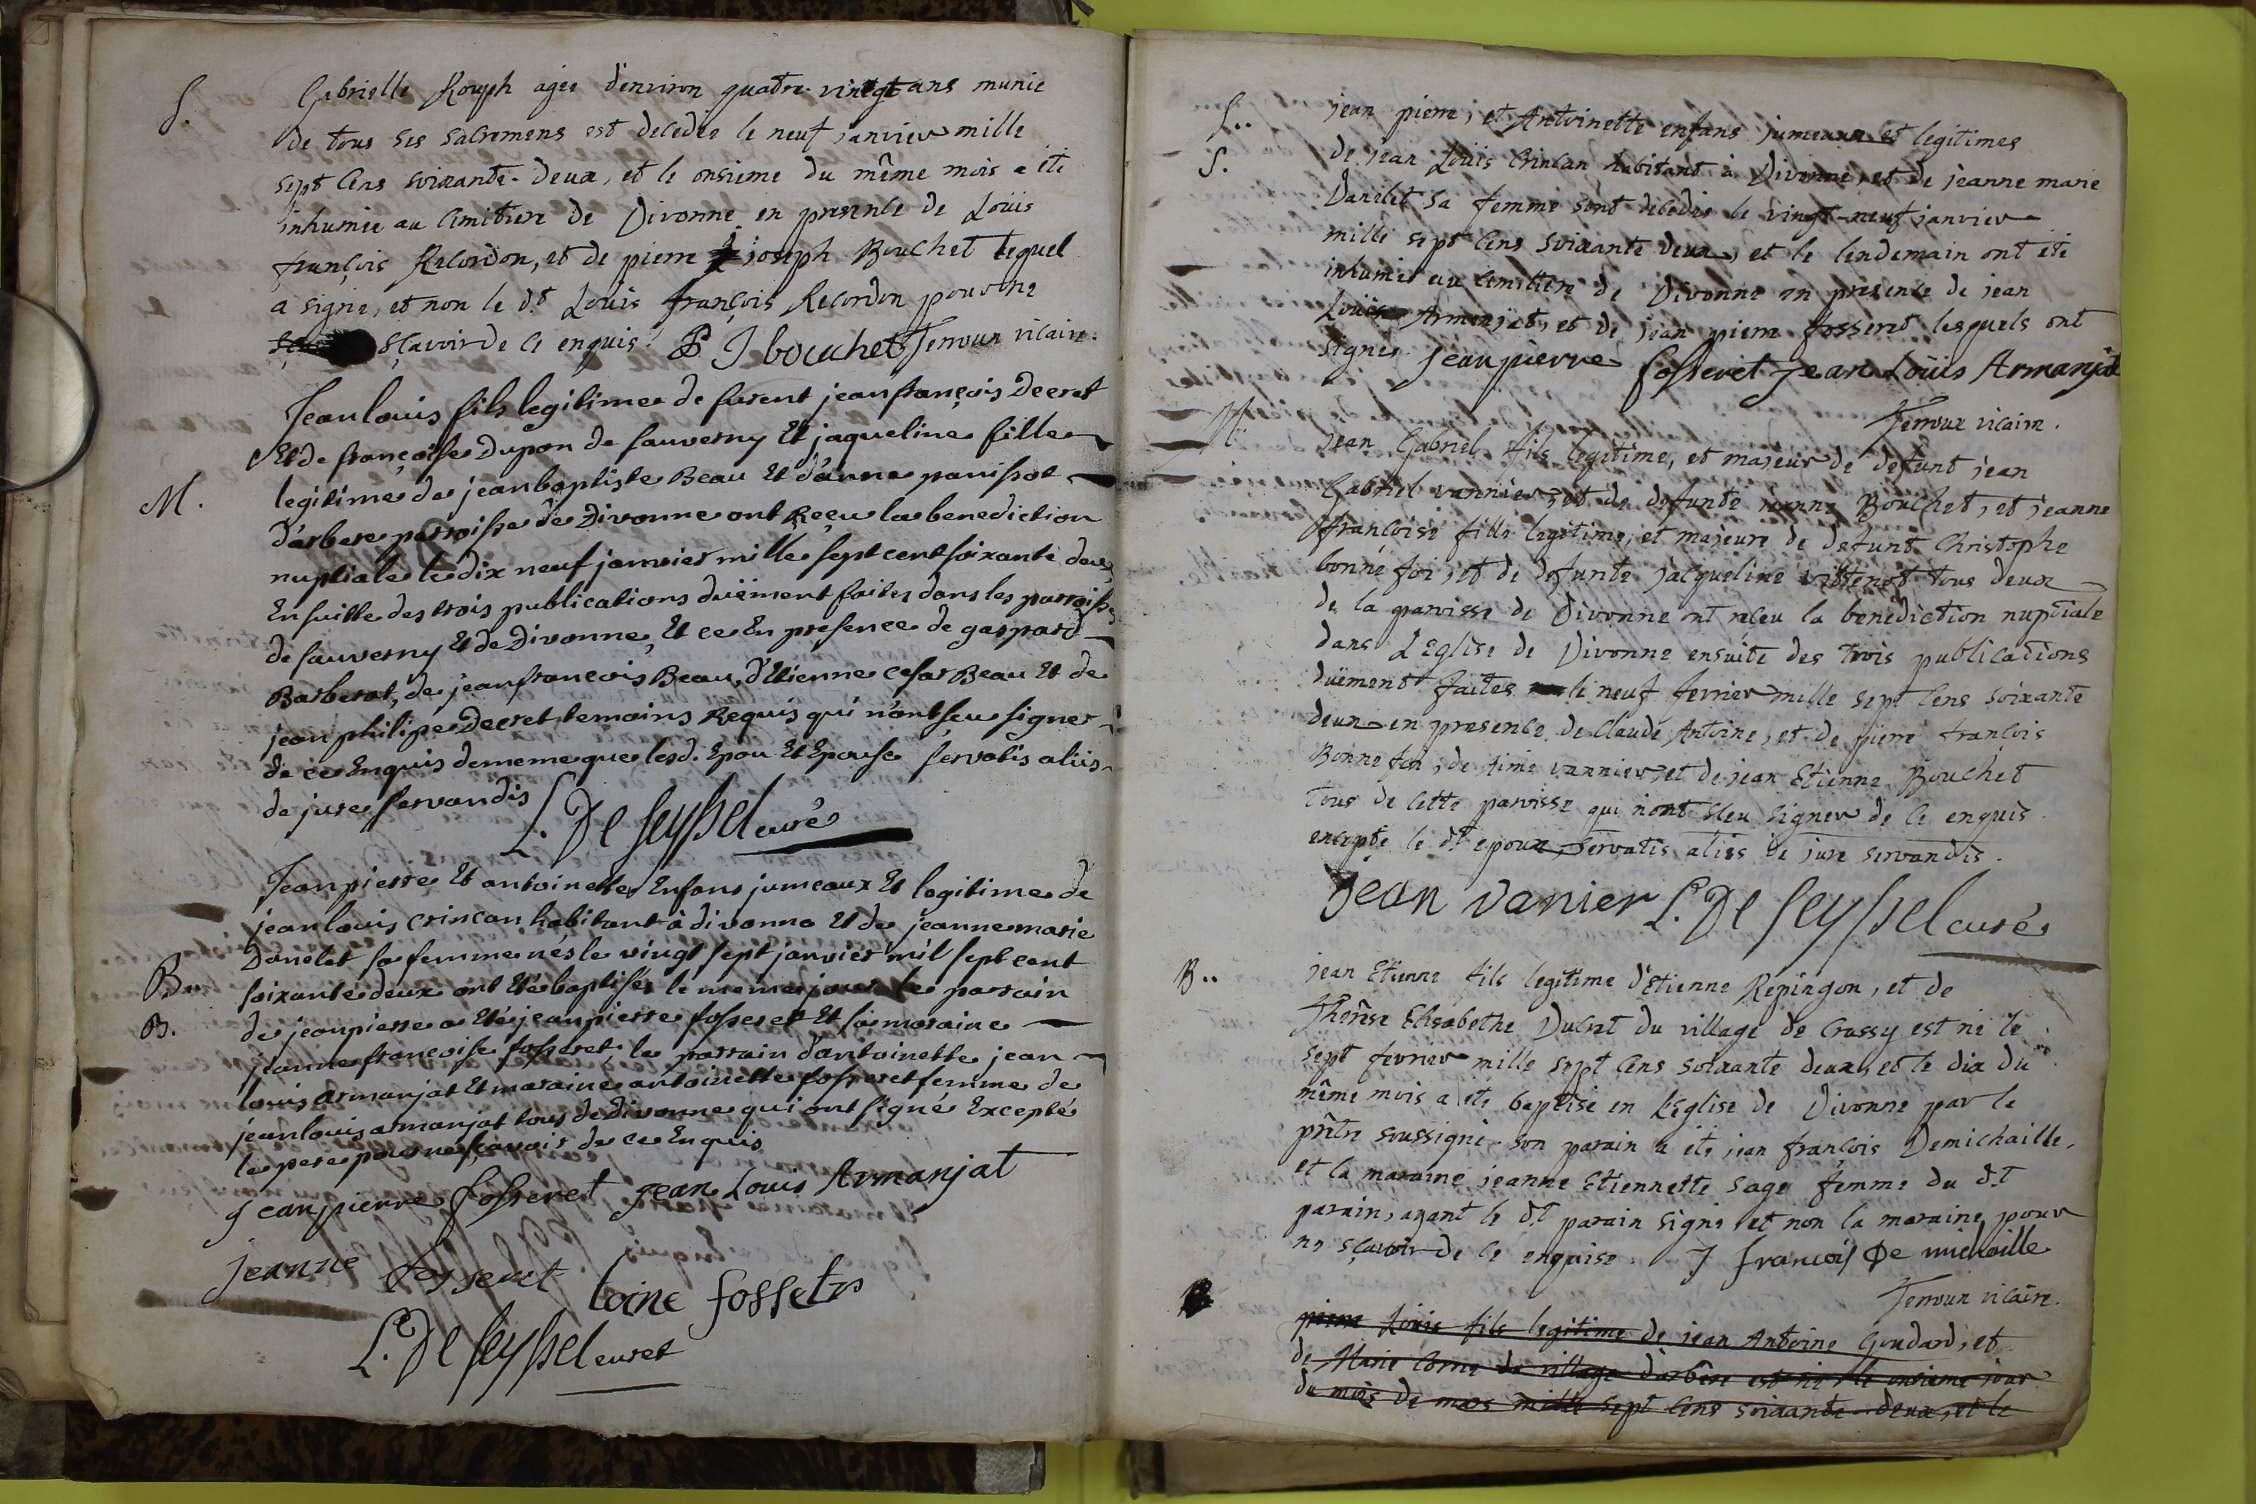 S.
Gabrielle Rouph agée d'environ quatre vingt ans munie
de tous ses sacremens est decedée le neuf janvier mille
sept cens soixante-deux, et le onsieme du même mois a été
inhumée au cimitiere de Divonne en presence de Loüis
françois Recordon, et de pierre joseph Bouchet lequel
a signé, et non le dt. Loüis françois Recordon pour ne
sçavoir de ce enquis. P J bouchet Jenoux vicaire.
M.
Jean louis fils legitime de furent jean françois Decret
Et de françoise Dupon de Sauverny Et jaqueline fille
legitime de jean baptiste Beau Et d'anne panissot
d'arbere parroisse de Divonne ont Reçeu la benediction
nuptiale le dix neuf janvier mille sept cent soixante deux
En suitte des trois publications duëment faites dans les parroisses
de sauverny Et de Divonne, Et ce En presence de gaspard
Barberat, de jean françois Beau, d'Etienne cesar Beau Et de
jean philipe Decret temoins Requis qui n'ont sçeu signer
de ce Enquis de meme que lesd. Epou Et Epouse servatis aliis
de jure servandis
L. De Seyssel curé
B..
B.
Jean pierre Et antoinette Enfans jumeaux Et legitime de
jean louis crincan habitant à divonne Et de jeanne marie
Danelet sa femme nés le vingt sept janvier mil sept cent
soixante deux ont Eté baptisés le meme jour le parrain
de jean pierre a Eté jean pierre fosseret Et sa maraine
jeanne françoise fosseret, le parrain d'antoinette jean
louis armanjat Et maraine antoinette fosseret femme de
jean louis armanjat tous de Divonne qui ont signé Excepté
le pere pour ne sçavoir de ce Enquis
jean pierre fosseret jean Louis Armanjat
jeanne fosseret toine fosseter
L. De Seyssel curet
S..
S.
jean pierre, et Antoinette enfans jumeaux et legitimes
de jean Loüis Crincan habitant à Divonne, et de jeanne marie
Danelet sa femme sont decedés le vingt-neuf janvier
mille sept cens soixante deux, et le lendemain ont été
inhumés au cimitiere de Divonne en presence de jean
Loüis Armanjat, et de jean pierre fosseret lesquels ont
signés. jean pierre fosseret jean Loüis Armanjat
Jenoux vicaire.
M.
jean Gabriel fils legitime, et majeur de defunt jean
Gabriel vannier, et de defunte jeanne Bouchet, et jeanne
françoise fille legitime, et majeure de defunt Christophe
bonne foi, et de defunte jacqueline vittenet tous deux
de la paroisse de Divonne ont receu la benediction nuptiale
dans L'Eglise de Divonne ensuite des trois publications
duëment faites le neuf fevrier mille sept cens soixante
deux en presence de Claude Antoine, et de pierre françois
Bonne foi, de aimé vannier, et de jean Etienne Bouchet
tous de cette paroisse qui n'ont sceu signer de ce enquis
excepté le dt. epoux, servatis aliis de jure servandis.
jean vanier L. De Seyssel curé
B..
jean Etienne fils legitime d'Etienne Repingon, et de
Therêse Elisabethe Ducret du village de Crassy est né le
sept fevrier mille sept cens soixante deux, et le dix du
même mois a été baptisé en L'Eglise de Divonne par le
prêtre soussigné. son parain a été jean françois Demichaille,
et la maraine jeanne Etiennette sage femme du dt.
parain, ayant le dt. parain signé et non la maraine pour
ne sçavoir de ce enquise. J françois De michaille
Jenoux vicaire.
B
pierre Loüis fils legitime de jean Antoine Goudard, et
de Marie Corne du village d'arbere est né le onsieme jour
du mois de mars mille sept cens soixante-deux, et le